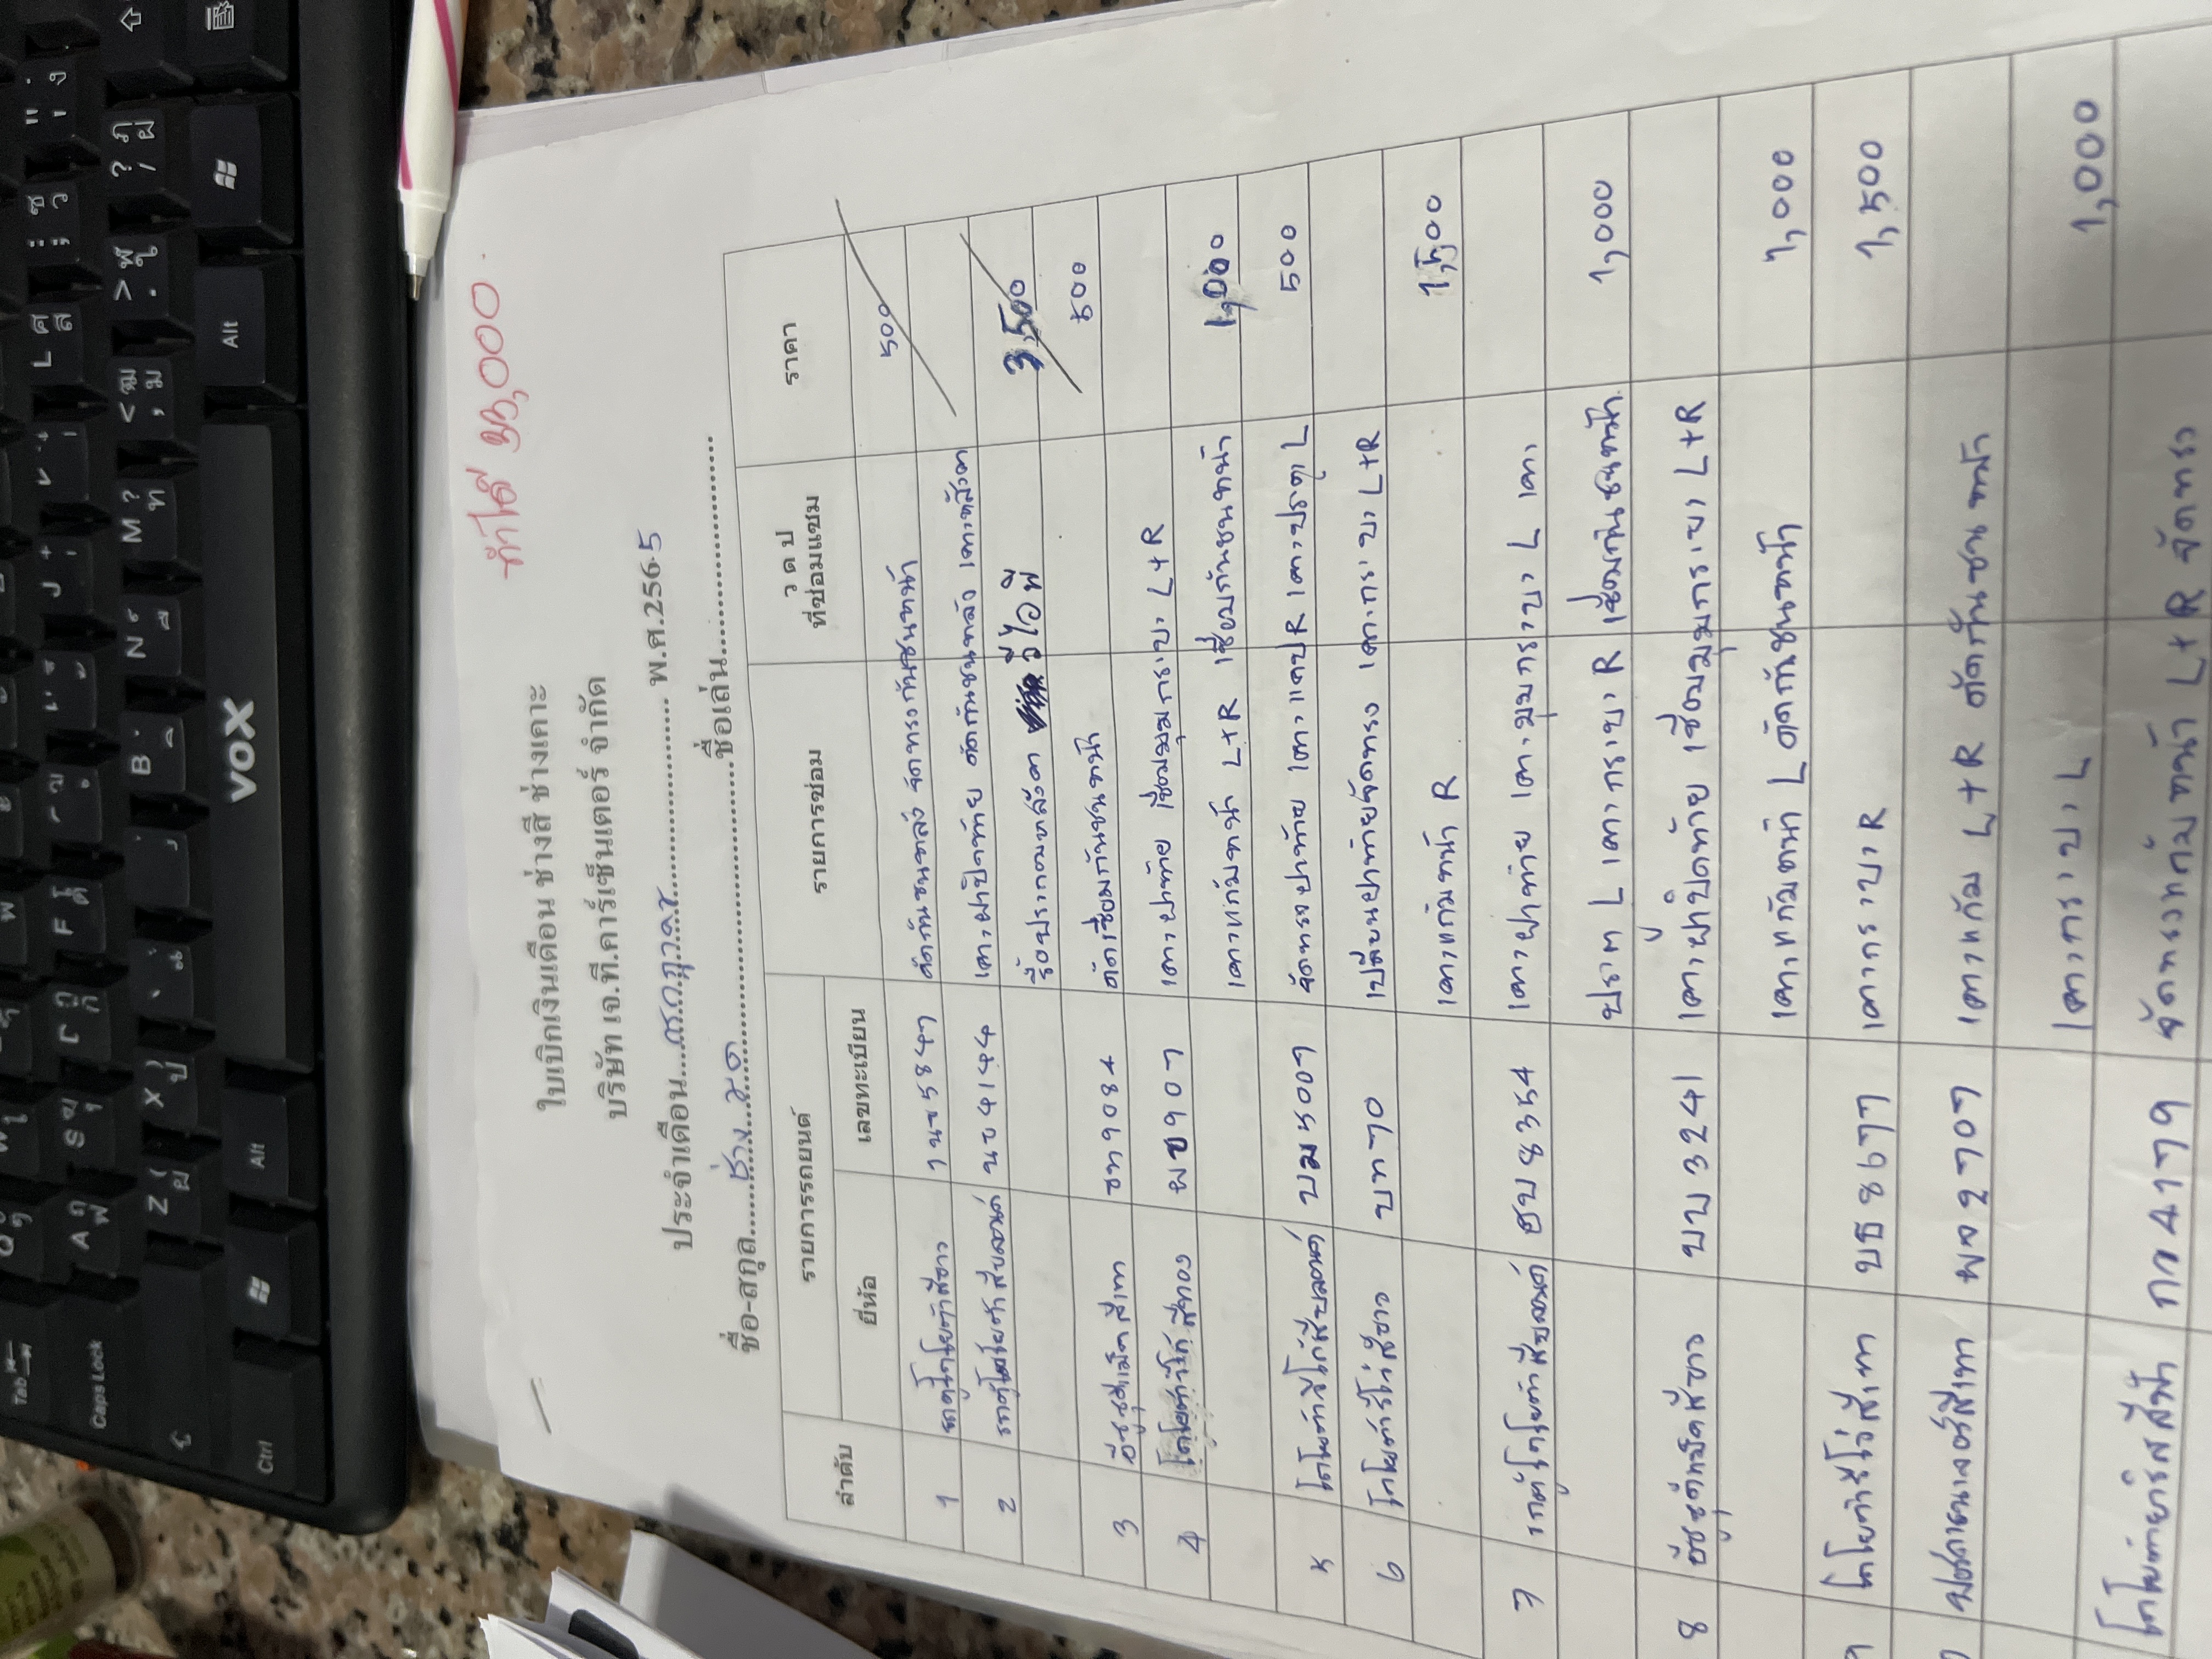 ทำได้ 23,000
ใบเบิกเงินเดือน ช่างสี ช่างเคาะ
บริษัท เจ.ที.คาร์เซ็นเตอร์ จำกัด
ประจำเดือน....กรกฎาคม.... พ.ศ.2565
ชื่อ-สกุล....ช่าง....ชื่อเล่น....
ลำดับ รายการรถยนต์ รายการซ่อม ว ด ป ที่ซ่อมแซม ราคา
ยี่ห้อ เลขทะเบียน
1 รถตู้โตโยต้าสีขาว นข 5847 ตัดกันชนหลัง จัดทรงกันชนหน้า 500
2 รถตู้โตโยต้าสีบลอนด์ นข 4144 เคาะฝาปิดท้าย ตัดกันชนหลัง เคาะหลังคา
รื้อประกอบหลังคา วีไอพี 3,500
3 อีซูซุสีเทา ขท 9084 ตัดเชื่อมกันชนหน้า 500
4 โตโยต้าวีโก้ สีทอง ผข 907 เคาะฝาท้าย เชื่อมมุมกระบะ L+R
เคาะแก้มหน้า L+R เชื่อมกันชนหน้า 1,000
5 โตโยต้าวีโก้สีบลอนด์ บม 5007 จัดทรงฝาท้าย เคาะแคป R เคาะประตู L 500
6 โตโยต้ารีโว่สีขาว บท 770 เปลี่ยนฝาท้ายจัดทรง เคาะกระบะ L+R
เคาะแก้มหน้า R 1,500
7 รถตู้โตโยต้าสีบลอนด์ ฮบ 8354 เคาะฝาท้าย เคาะมุมกระบะ L เคาะ
L เคาะกระบะ R เชื่อมกันชนหน้า 1,000
8 อีซูซุดีแม็คสีขาว บบ 3241 เคาะฝาปิดท้าย เชื่อมมุมกระบะ L+R
เคาะแก้มหน้า L ตัดกันชนหน้า 1,000
9 โตโยต้ารีโว่สีเทา บธ 8677 เคาะกระบะ R 1,500
สีเทา ผจ 2707 เคาะแก้ม L+R ตัดกันชนหน้า
เคาะกระบะ L 1,000
โตโยต้ายาริสสีฟ้า กก 4179 จัดทรงแก้มหน้า L+R จัดทรง
VOX
Tab
Caps Lock
Ctrl
Alt
Alt